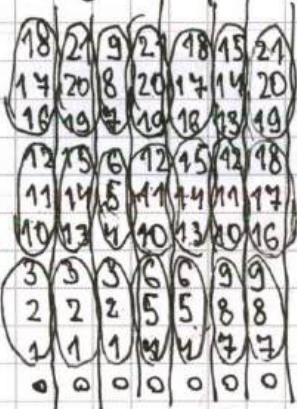 18 21 9 21 18 15 21
17 20 8 20 17 14 20
16 19 7 19 16 13 19
12 15 6 12 15 12 18
11 14 5 11 14 11 17
10 13 4 10 13 10 16
3 3 3 6 6 9 9
2 2 2 5 5 8 8
1 1 1 4 4 7 7
0 0 0 0 0 0